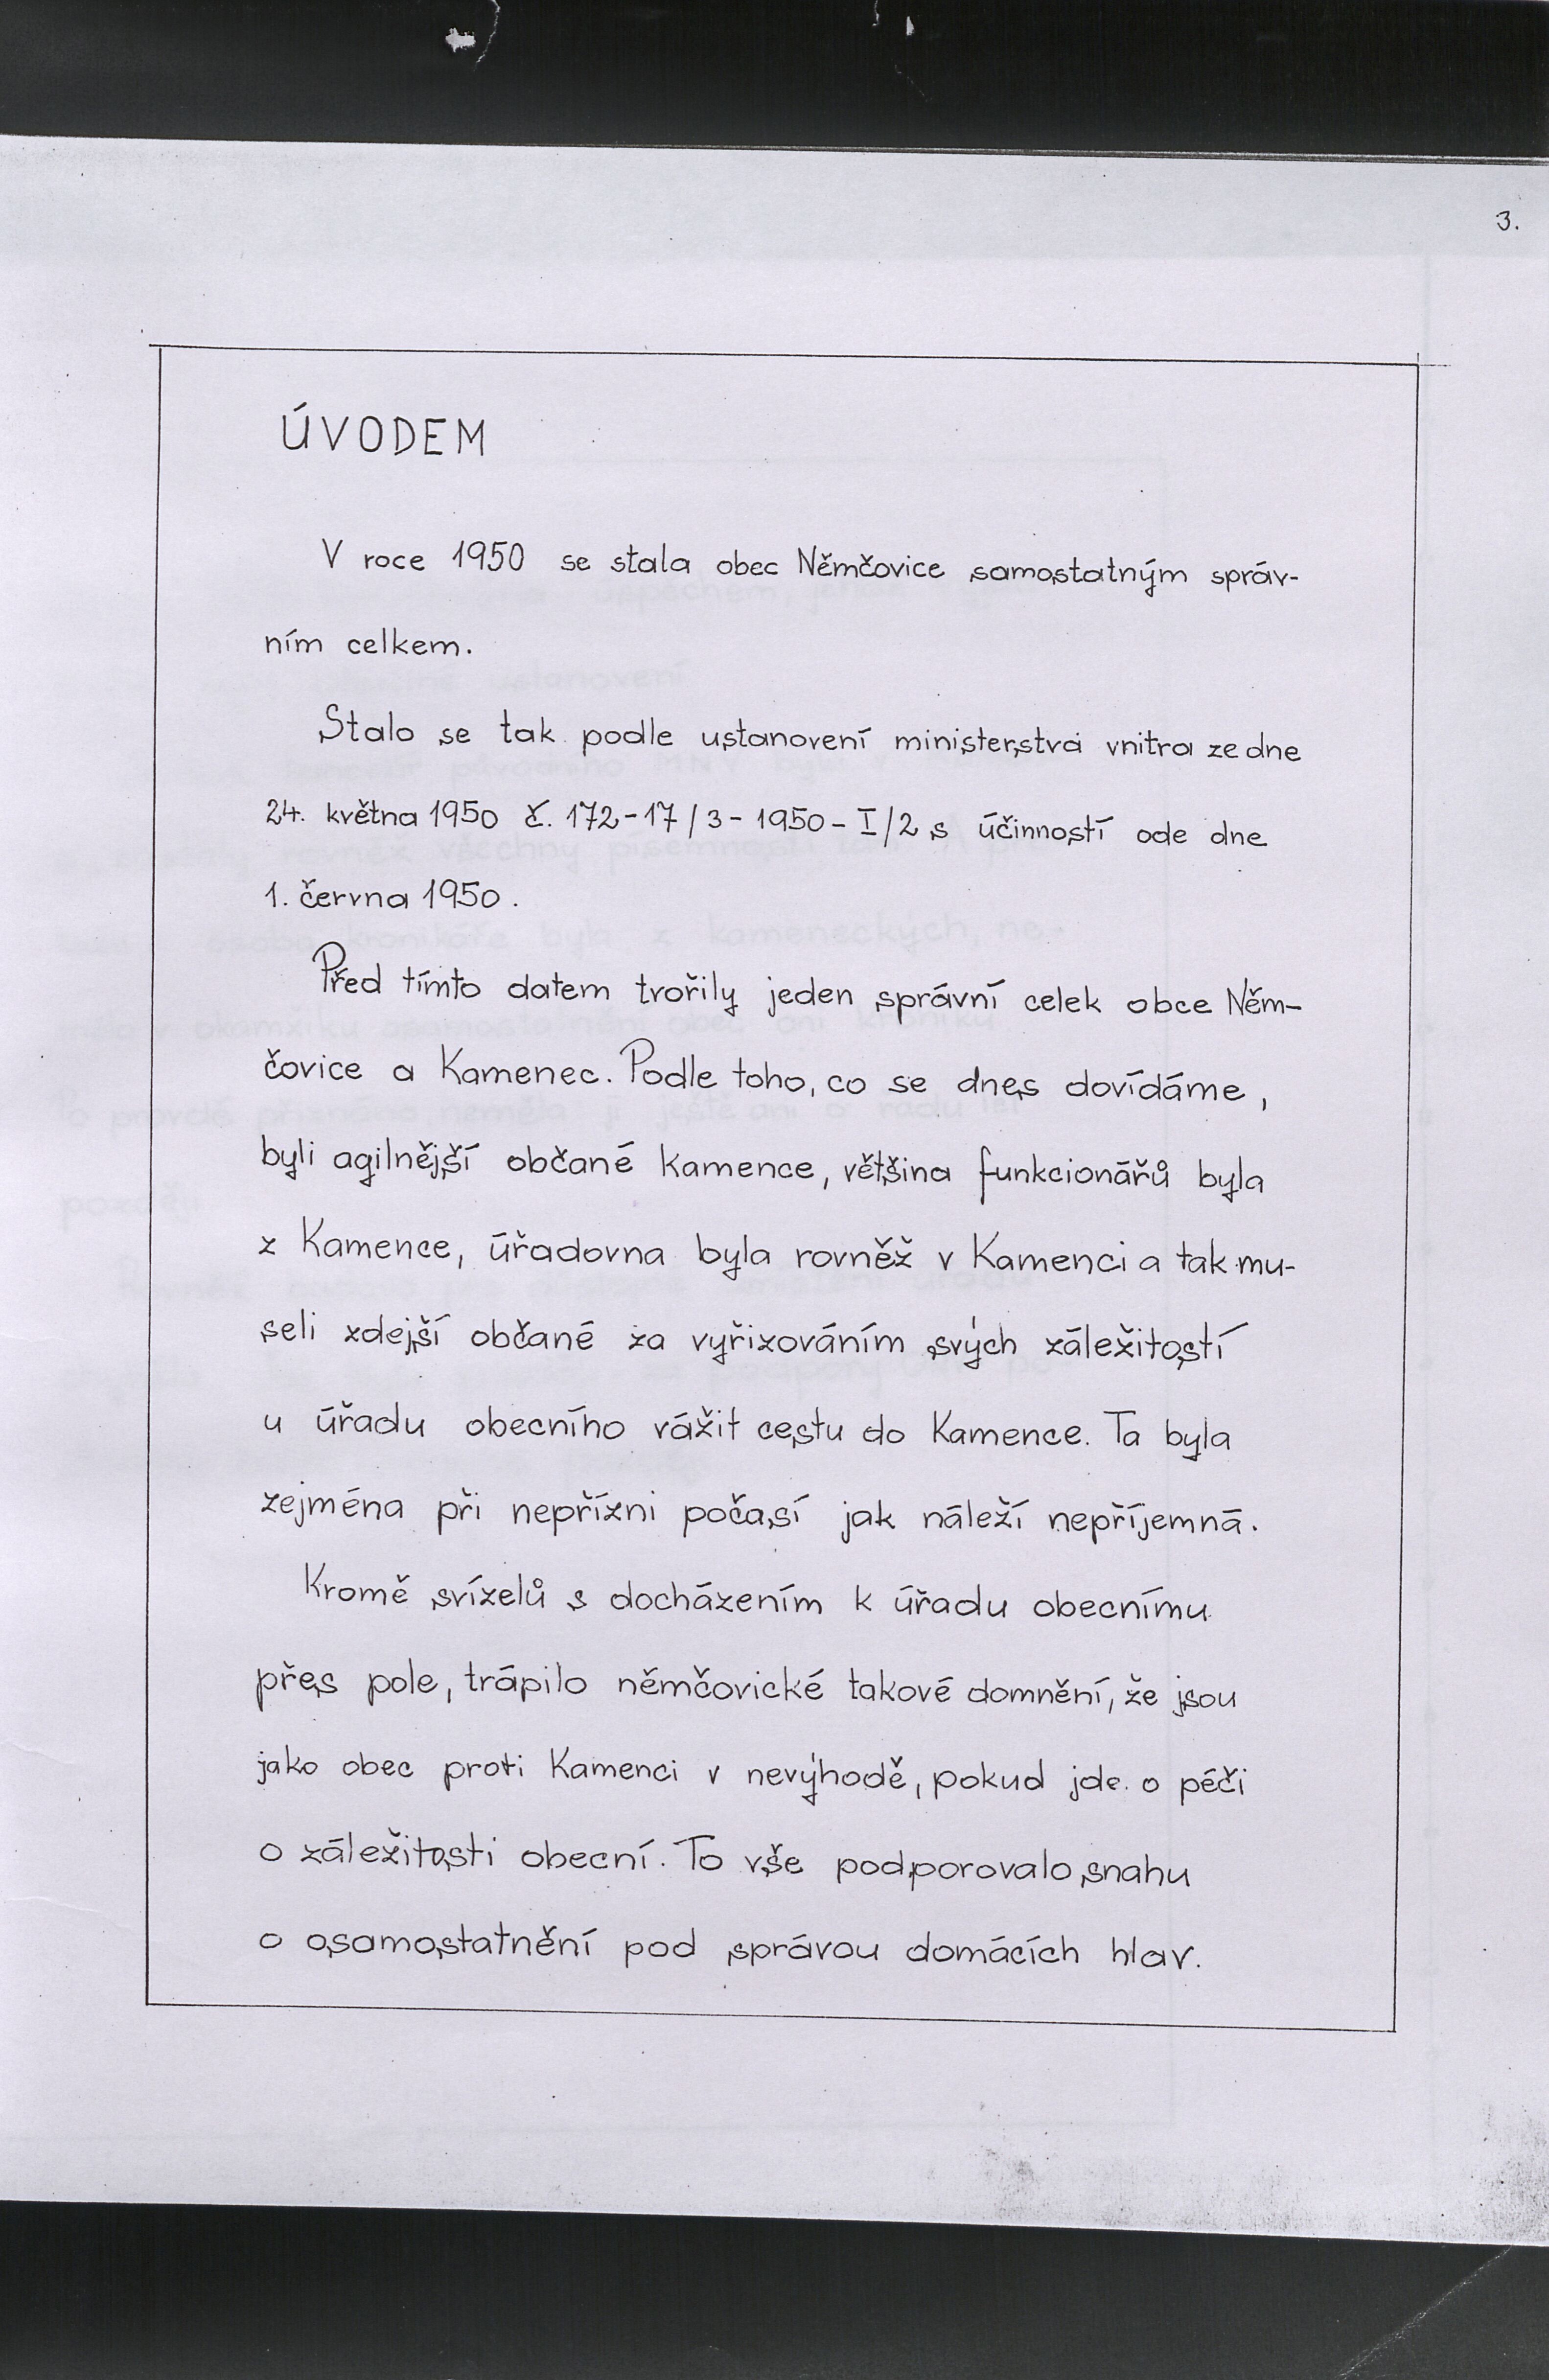 3.
ÚVODEM
V roce 1950 se stala obec Němčovice samostatným správ-
ním celkem.
Stalo se tak podle ustanovení ministerstva vnitra ze dne
24. května 1950 č. 172-17/3-1950-I/2 s účinností ode dne
1. června 1950.
Před tímto datem tvořily jeden správní celek obce Něm-
čovice a Kamenec. Podle toho, co se dnes dovídáme,
byli agilnější občané Kamence, většina funkcionářů byla
z Kamence, úřadovna byla rovněž v Kamenci a tak mu-
seli zdejší občané za vyřizováním svých záležitostí
u úřadu obecního vážit cestu do Kamence. Ta byla
zejména při nepřízni počasí jak náleží nepříjemná.
Kromě svízelů s docházením k úřadu obecnímu
přes pole, trápilo němčovické takové domnění, že jsou
jako obec proti Kamenci v nevýhodě, pokud jde o péči
o záležitosti obecní. To vše podporovalo snahu
o osamostatnění pod správou domácích hlav.